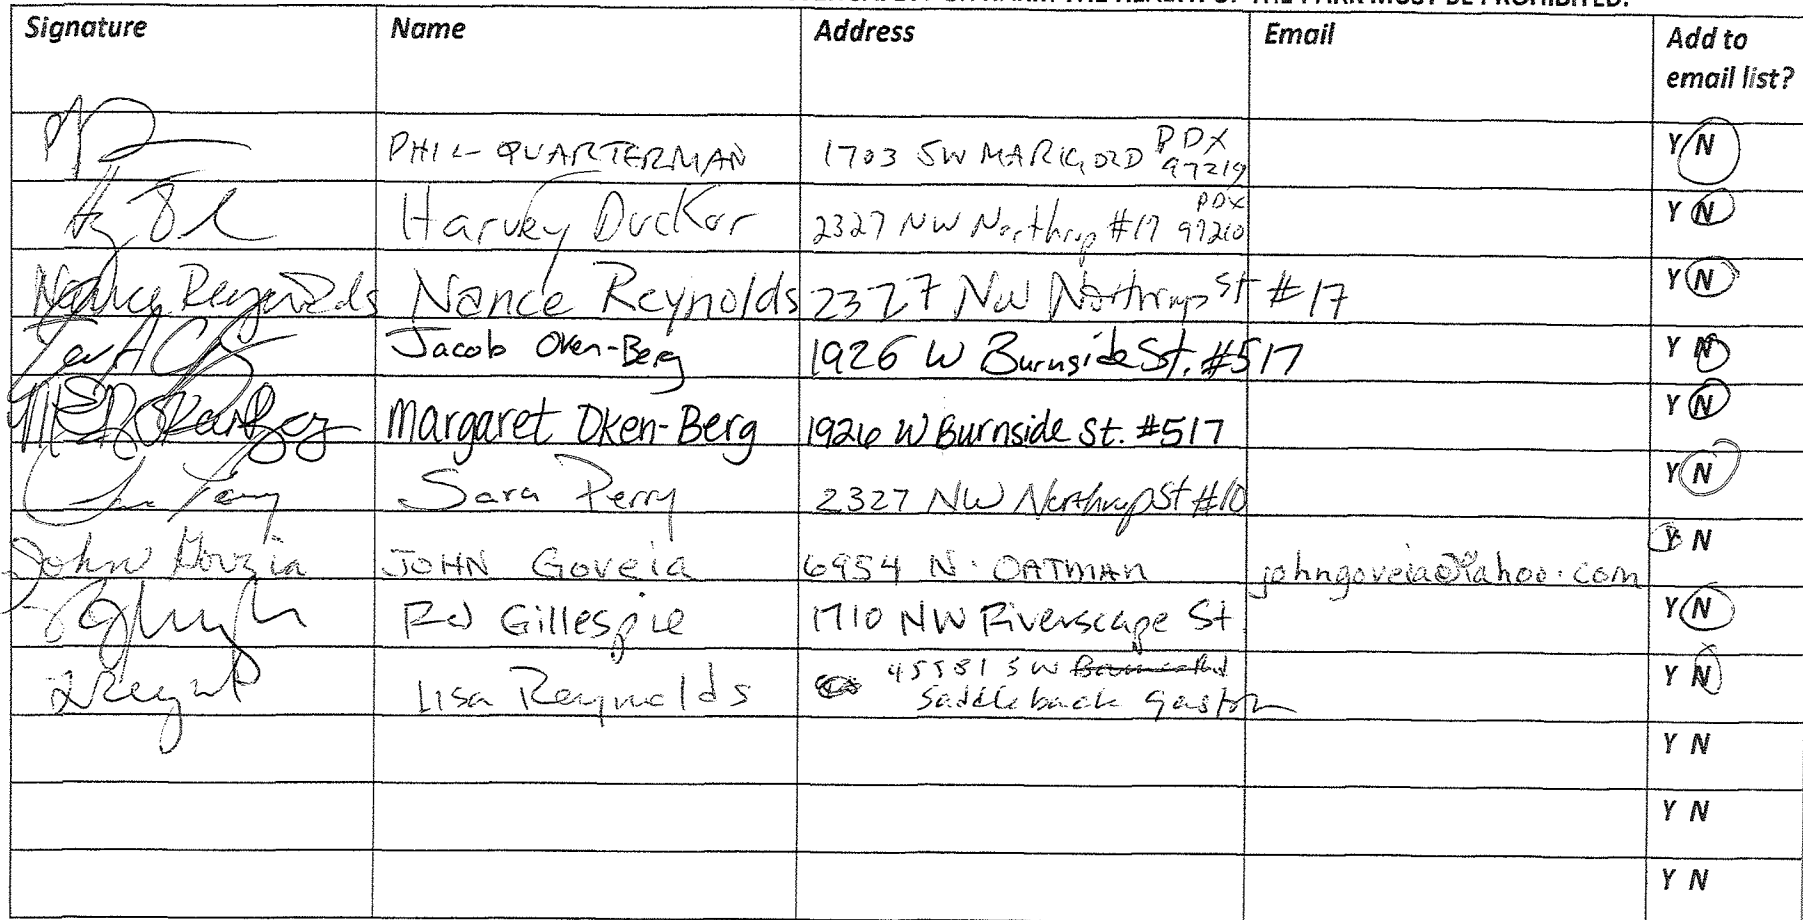 THE HEALTH OF THE PARK MUST BE PROHIBITED.
Signature Name Address Email Add to
email list?
PHIL QUARTERMAN 1703 SW MARIGOLD PDX 97219 Y N
Harvey Ducker 2327 NW Northrup #17 PDX 97210 Y N
Nance Reynolds Nance Reynolds 2327 NW Northrup St #17 Y N
Jacob Oken-Berg 1926 W Burnside St. #517 Y N
Margaret Oken-Berg 1926 W Burnside St. #517 Y N
Sara Perry 2327 NW Northrup St #10 Y N
John Goveia JOHN Goveia 6954 N. OATMAN johngoveia@Yahoo.com Y N
Gillespie 1710 NW Riverscape St Y N
Lisa Reynolds 45581 SW Y N
Saddleback Gaston
Y N
Y N
Y N